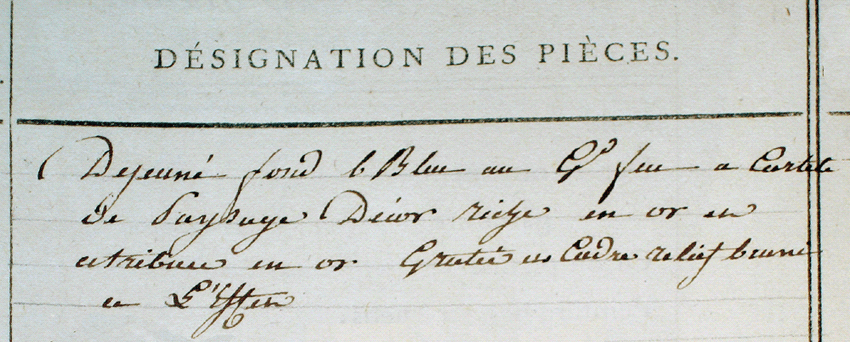 DÉSIGNATION DES PIÈCES.
Dejeuné fond b Bleu au Gd feu a Cartels
de Paysage Décor riche en or en
attribut en or Gratté en Cadre relief bruni
a L'Effet